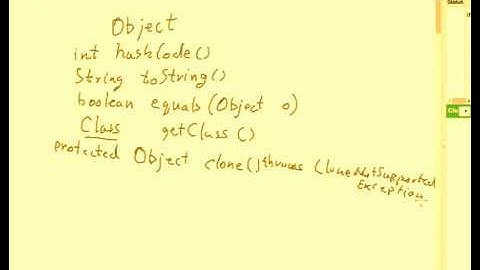 Object
int hashCode()
String toString()
boolean equals(Object o)
Class getClass()
protected Object clone() throws CloneNotSupported
Exception
Status